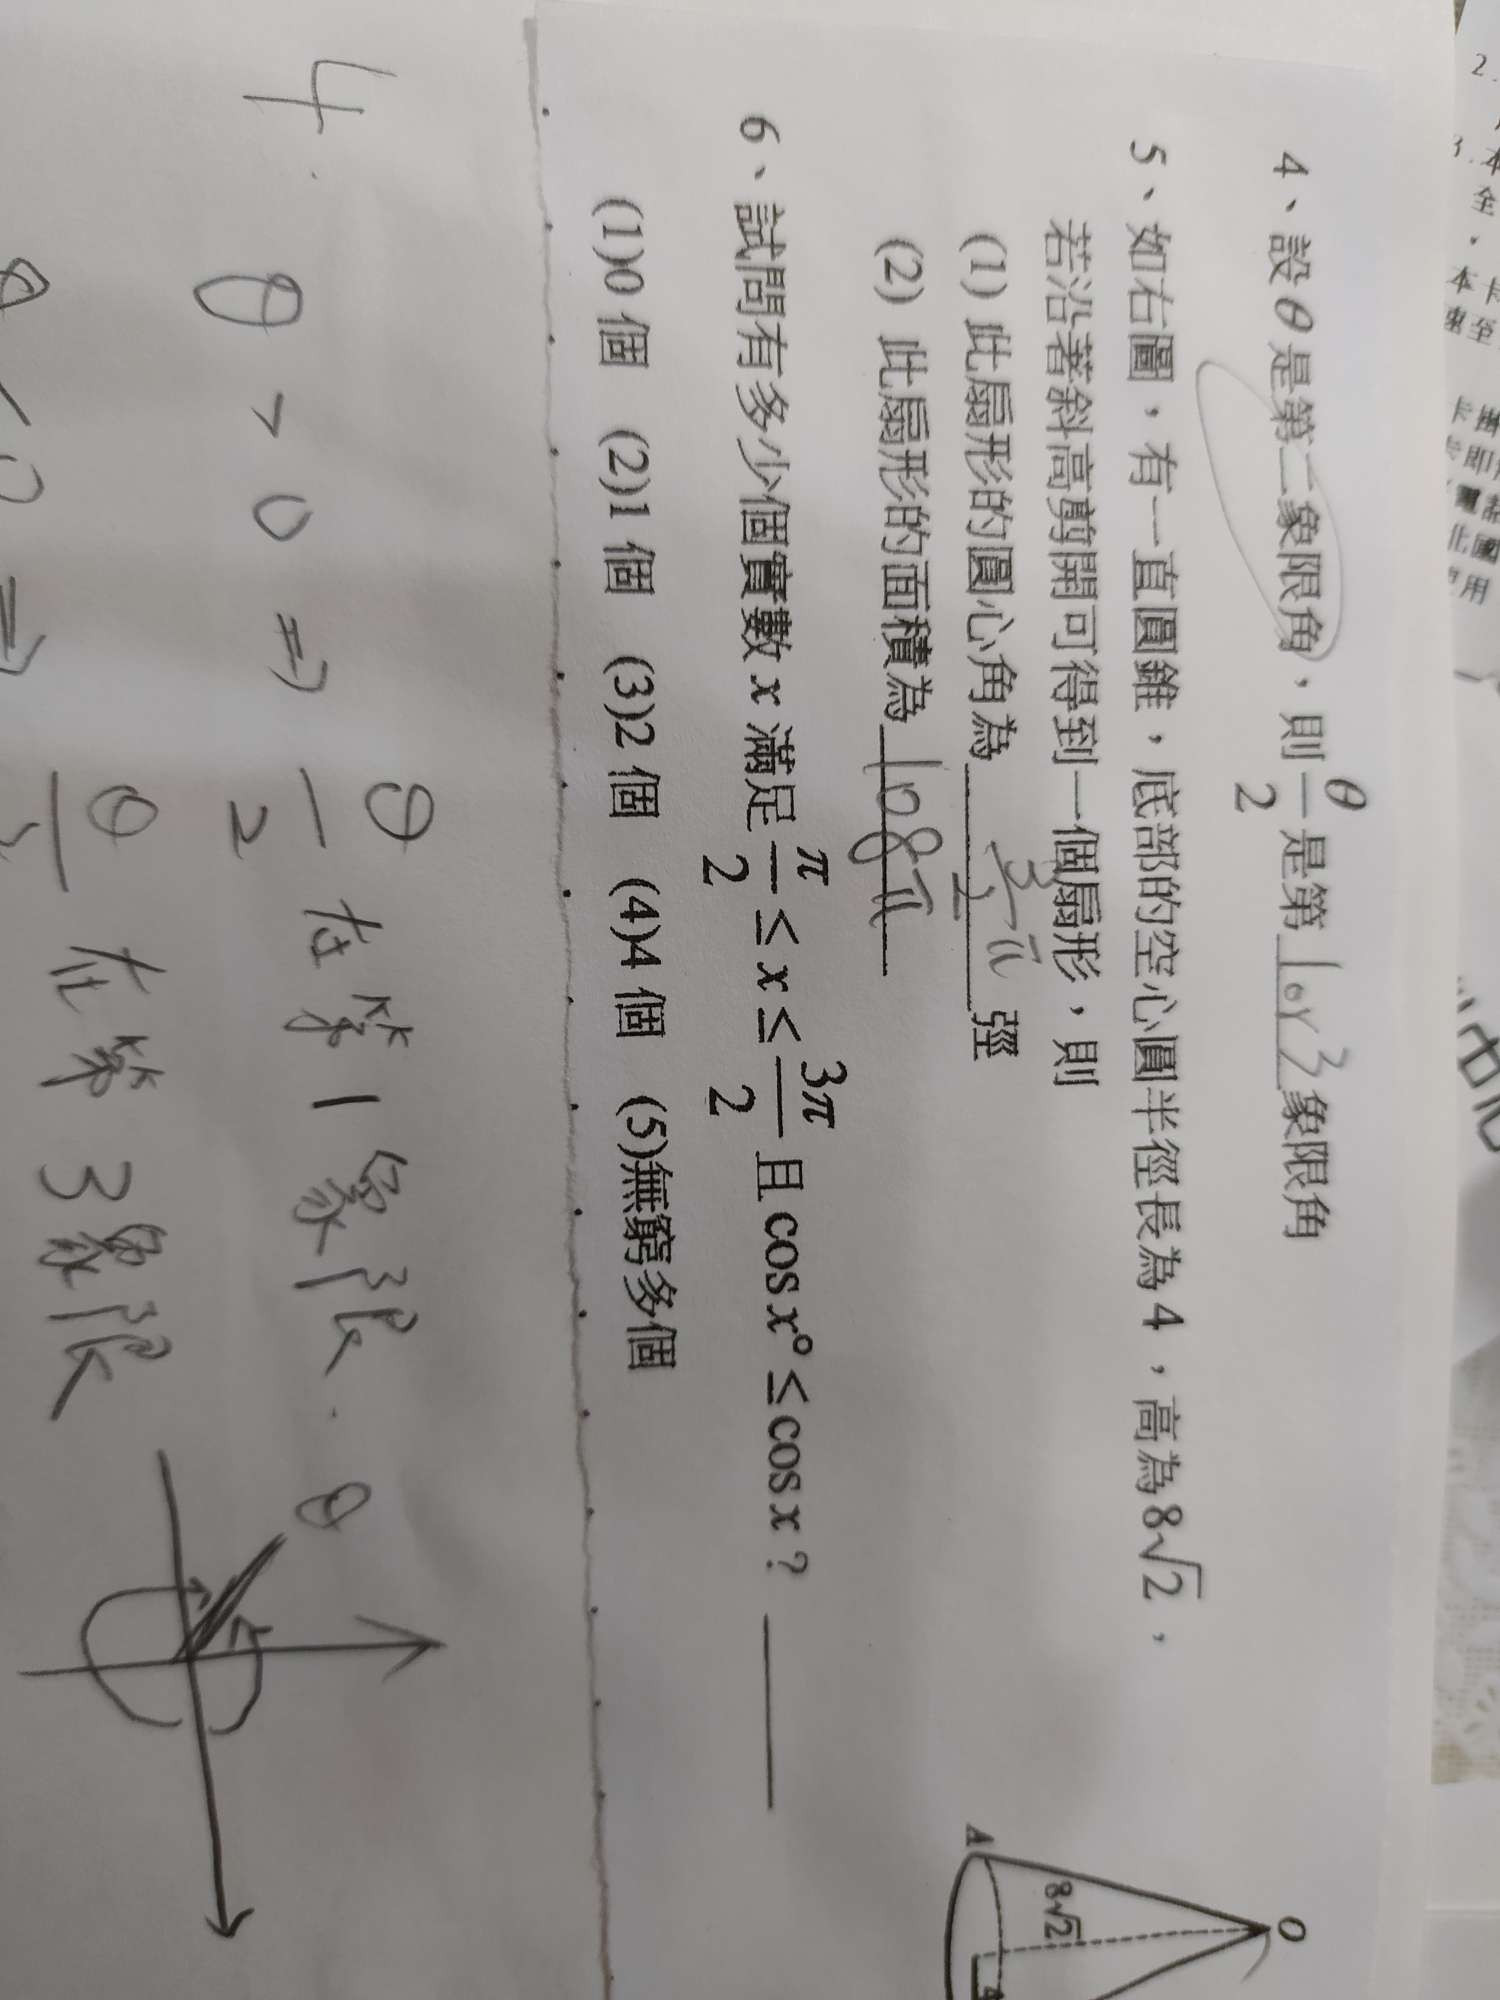 4、設θ是第二象限角，則θ/2是第 1 or 3 象限角
5、如右圖，有一直圓錐，底部的空心圓半徑長為4，高為8√2，
若沿著斜高剪開可得到一個扇形，則
(1) 此扇形的圓心角為 弳
(2) 此扇形的面積為 108π
O
8√2
A
6、試問有多少個實數x滿足π/2≤x≤3π/2且cos x°≤cos x？
(1)0個 (2)1個 (3)2個 (4)4個 (5)無窮多個
4.
θ>0⇒θ/2在第1象限.
θ
θ<0⇒ 在第3象限